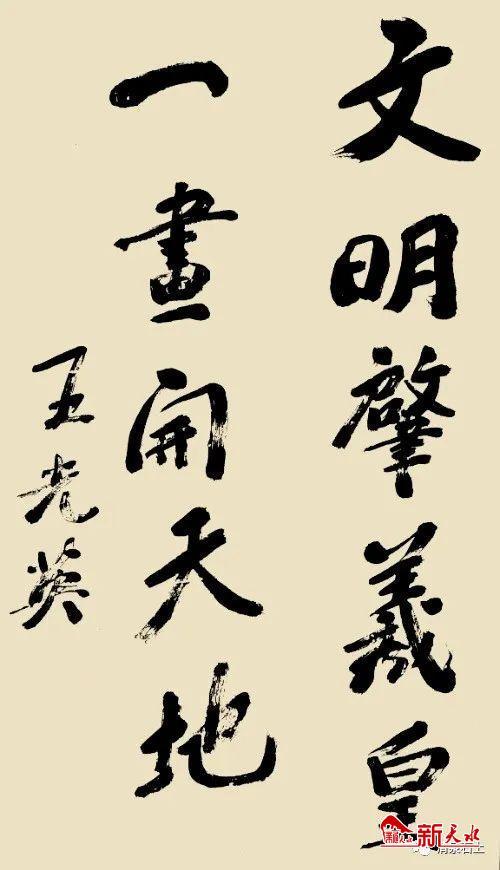 文明肇羲皇
一畫開天地
王光英
新天水